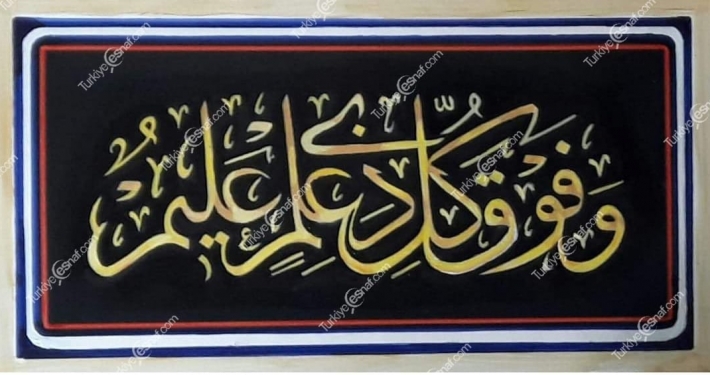 وَفَوْقَ كُلِّ ذِي عِلْمٍ عَلِيمٌ
TurkiyeEsnaf.com